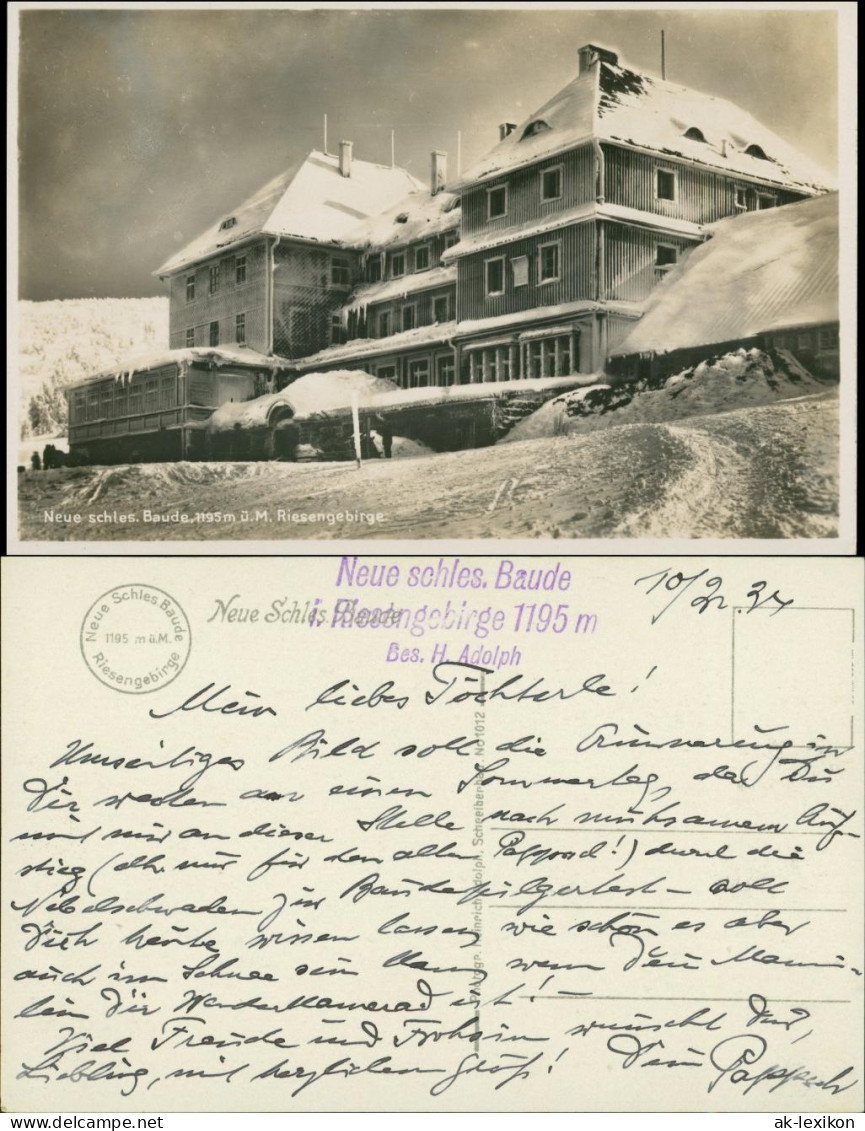 Neue schles. Baude, 1195m ü. M. Riesengebirge.
Neue Schles. Baude
1195 m ü. M.
Riesengebirge
Neue Schles. Baude
Neue schles. Baude
i. Riesengebirge 1195 m
Bes. H. Adolph
10/2. 34
Mein liebes Töchterle!
Umseitiges Bild soll die Erinnerung in
Dir wecken an einen Sommertag, da Du
mit mir an dieser Stelle nach mühsamem Auf-
stieg (aber nur für den alten Pappoch!) durch die
Nebelschwaden zur Baude gepilgert – soll
Dich heute wissen lassen, wie schön es aber
auch im Schnee sein kann, wenn Dein Mannı-
lein Dir Wanderkamerad ist! –
Viel Freude und Frohsinn wünscht Dir,
Liebling, mit herzlichem Gruß! Dein Pappoch
Photogr. Heinrich Adolph, Schreiberhau. No 1012
www.ak-ansichtskarten.de
ak-lexikon